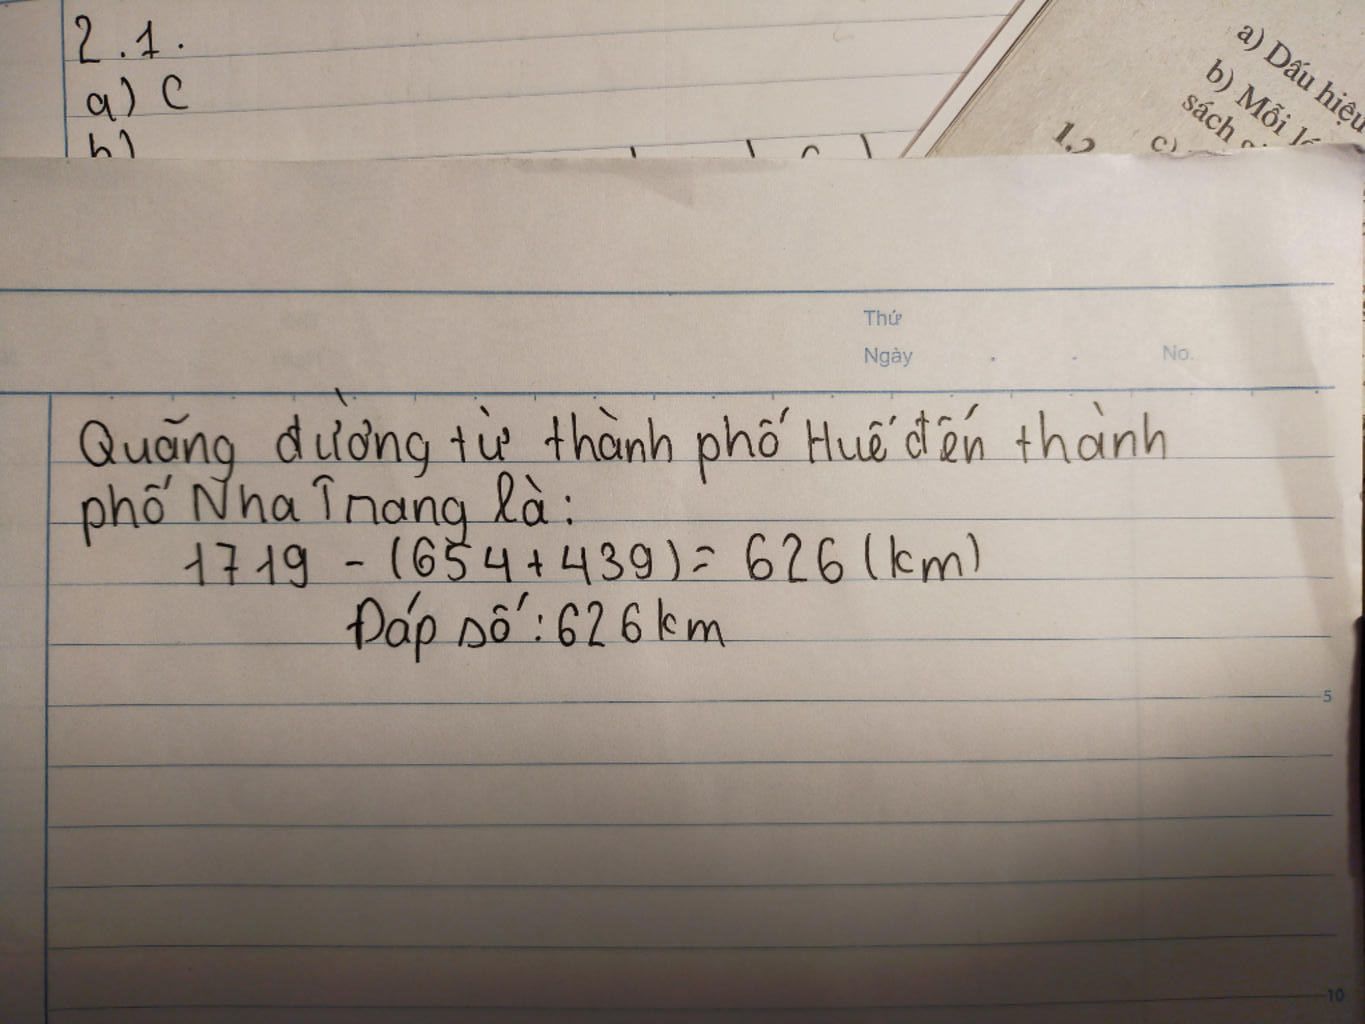 2.1.
a) C
b)
a) Dấu hiệu
b) Mỗi
sách
1.2
c)
Thứ
Ngày . . No.
Quãng đường từ thành phố Huế đến thành
phố Nha Trang là:
1719 - (654 + 439) = 626 (km)
Đáp số: 626 km
5
10